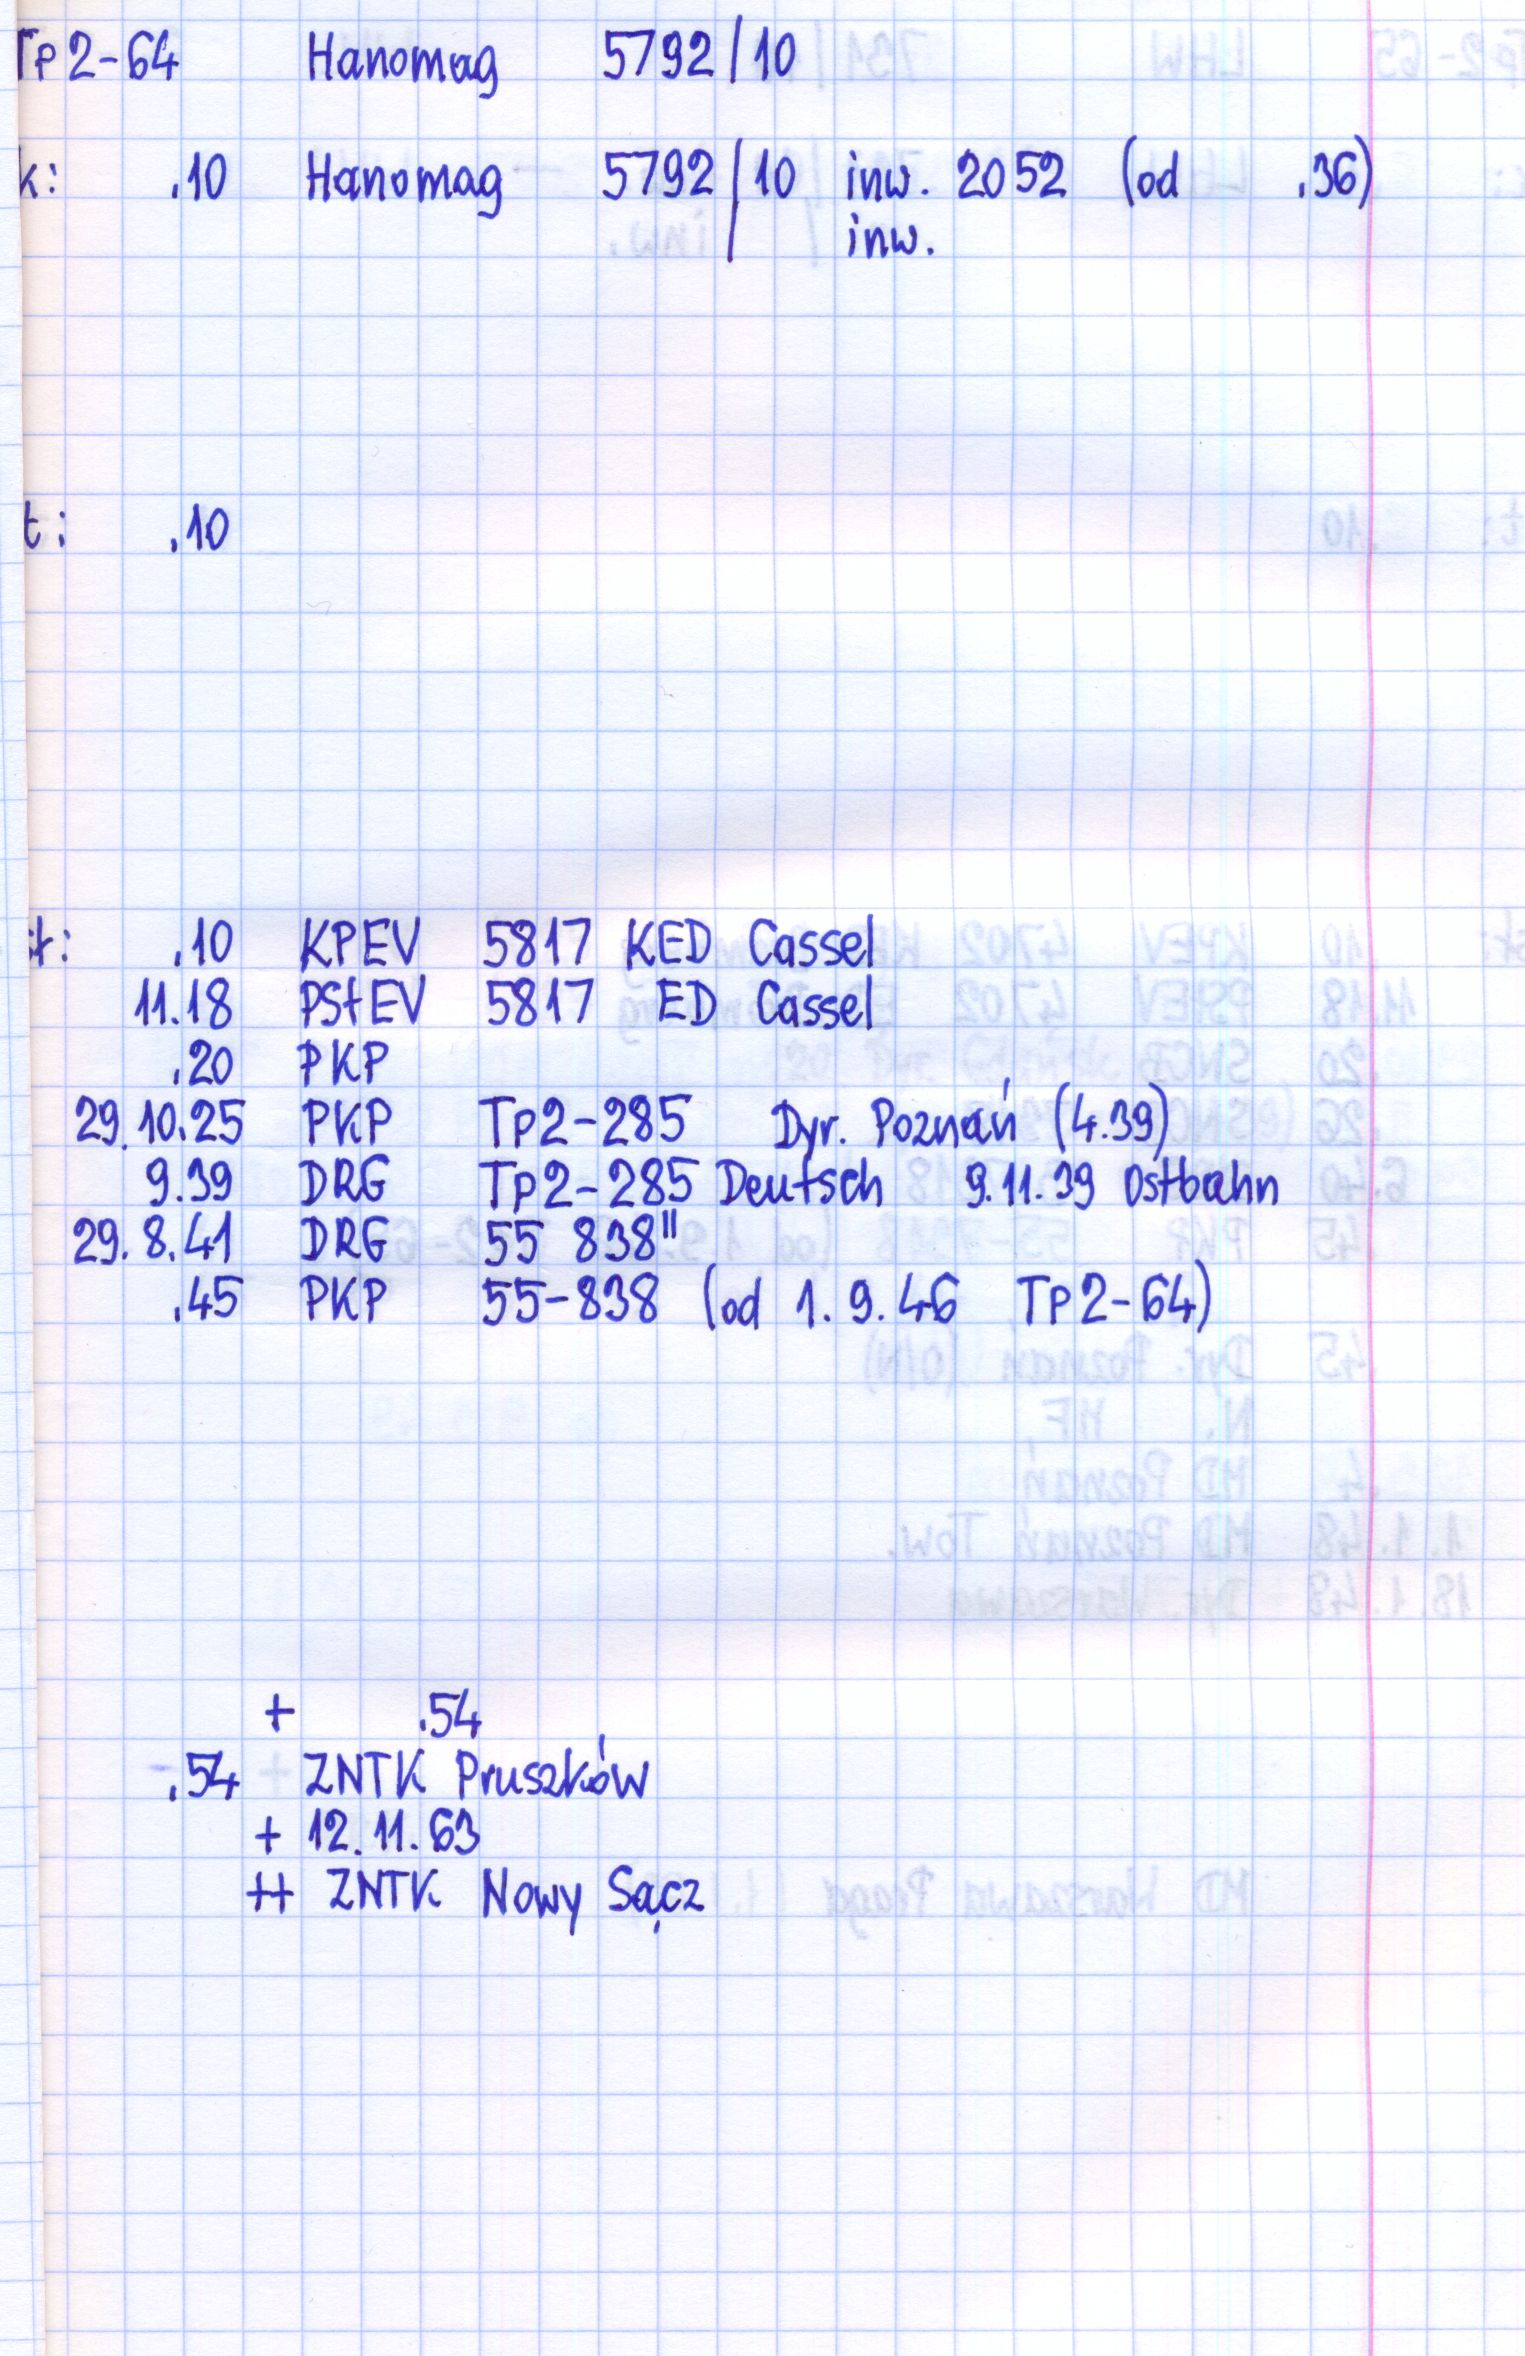 Tp2-64 Hanomag 5792/10
k: .10 Hanomag 5792/10 inw. 2052 (od .36)
inw.
t: .10
st: .10 KPEV 5817 KED Cassel
11.18 PStEV 5817 ED Cassel
.20 PKP
29.10.25 PKP Tp2-285 Dyr. Poznań (4.39)
9.39 DRG Tp2-285 Deutsch 9.11.39 Ostbahn
29.8.41 DRG 55 838"
.45 PKP 55-838 (od 1.9.46 Tp2-64)
+ .54
.54 ZNTK Pruszków
+ 12.11.63
++ ZNTK Nowy Sącz